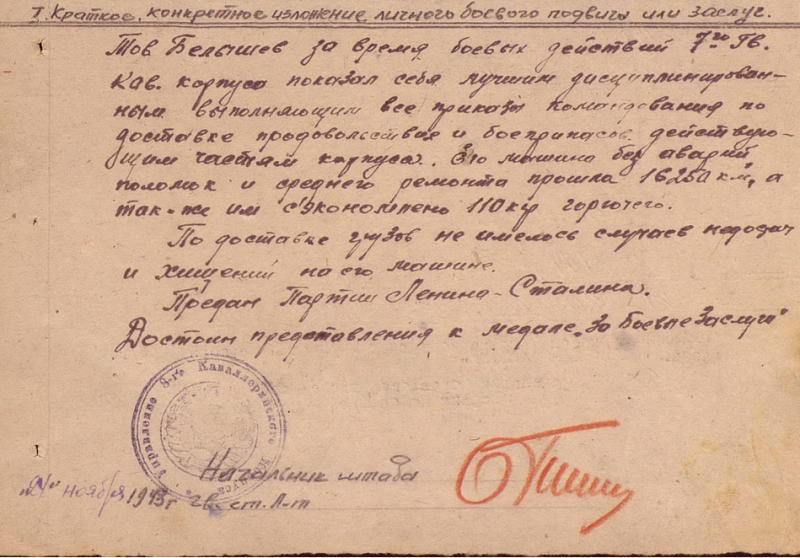 I. Краткое, конкретное изложение личного боевого подвига или заслуг.
Тов Белышев за время боевых действий 7го Гв.
Кав. корпуса показал себя лучшим дисциплинирован-
ным выполняющим все приказы командования по
доставке продовольствия и боеприпасов действую-
щим частям корпуса. Его машина без аварий
поломок и среднего ремонта прошла 16250 км, а
так-же им с'экономлено 110 кгр горючего.
По доставке грузов не имелось случаев недодач
и хищений на его машине.
Предан Партии Ленина-Сталина.
Достоин представления к медале „За Боевые Заслуги"
Управление 8-го Каваллерийского
Начальник штаба
ноября 1943г гв. ст. Л-т